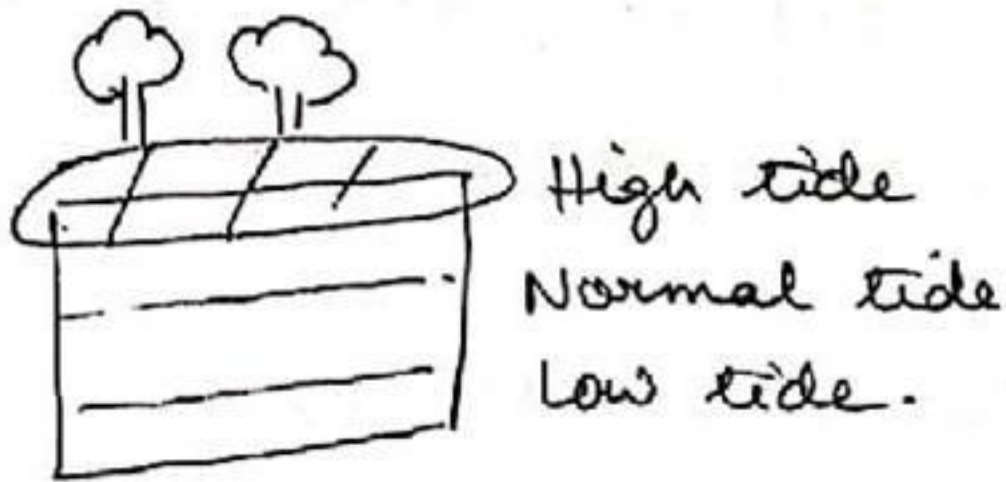 High tide
Normal tide
Low tide.